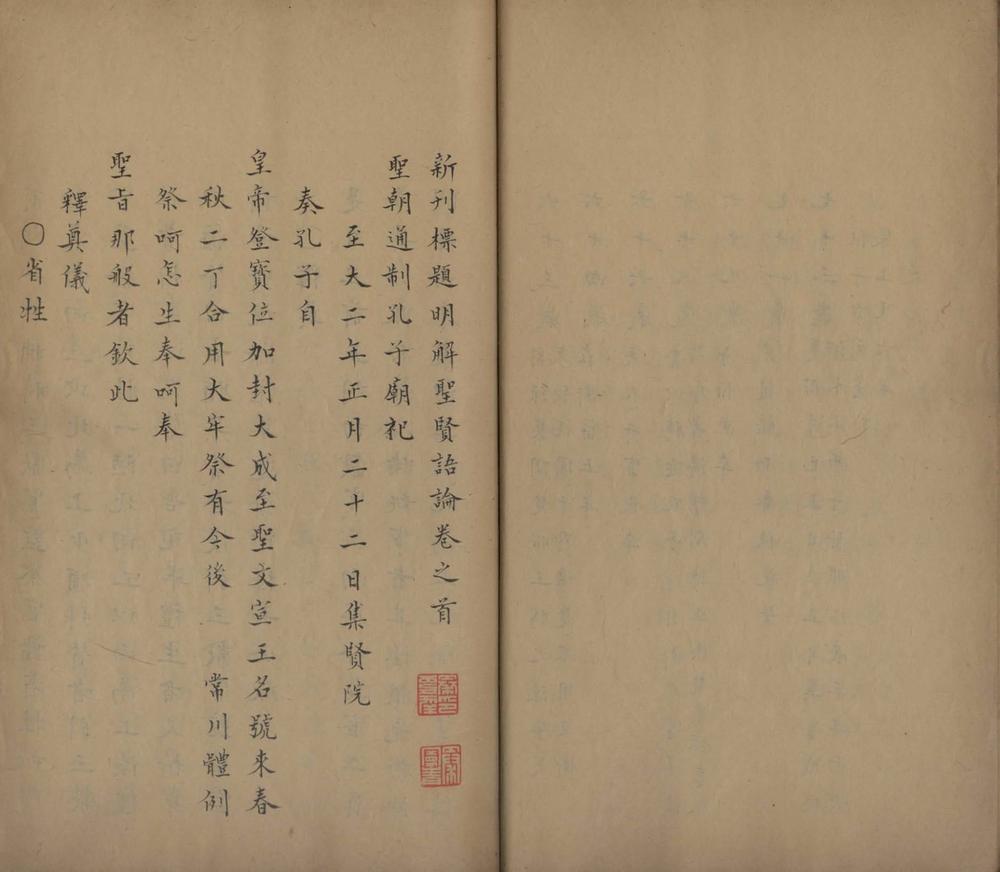 新刊標題明解聖賢語論卷之首
聖朝通制孔子廟祀
至大二年正月二十二日集賢院
奏孔子自
皇帝登寶位加封大成至聖文宣王名號來春
秋二丁合用大牢祭有今後常川體例
祭呵怎生奉呵奉
聖旨那般者欽此
釋奠儀
○省牲